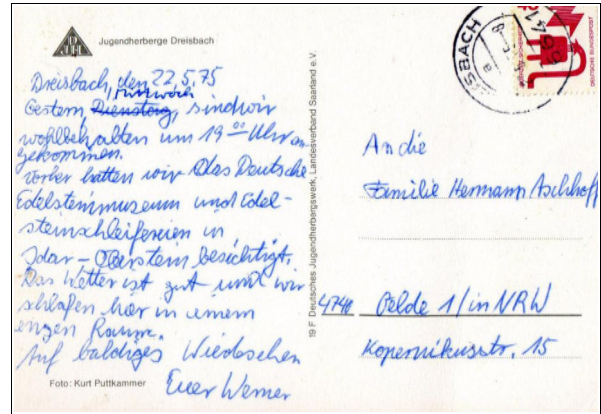 Jugendherberge Dreisbach
Dreisbach, den 22.5.75
Mittwoch
Gestern, Dienstag, sind wir
wohlbehalten um 19 00 Uhr an-
gekommen.
Vorher hatten wir das Deutsche
Edelsteinmuseum und Edel-
steinschleifereien in
Idar-Oberstein besichtigt.
Das Wetter ist gut und wir
schlafen hier in einem
engen Raum.
Auf baldiges Wiedersehen
Euer Werner
Foto: Kurt Puttkammer
19 F Deutsches Jugendherbergswerk, Landesverband Saarland e.V.
DEUTSCHE BUNDESPOST
SSBACH
6641
An die
Familie Hermann Aschhoff
4740 Oelde 1/in NRW
Kopernikusstr. 15